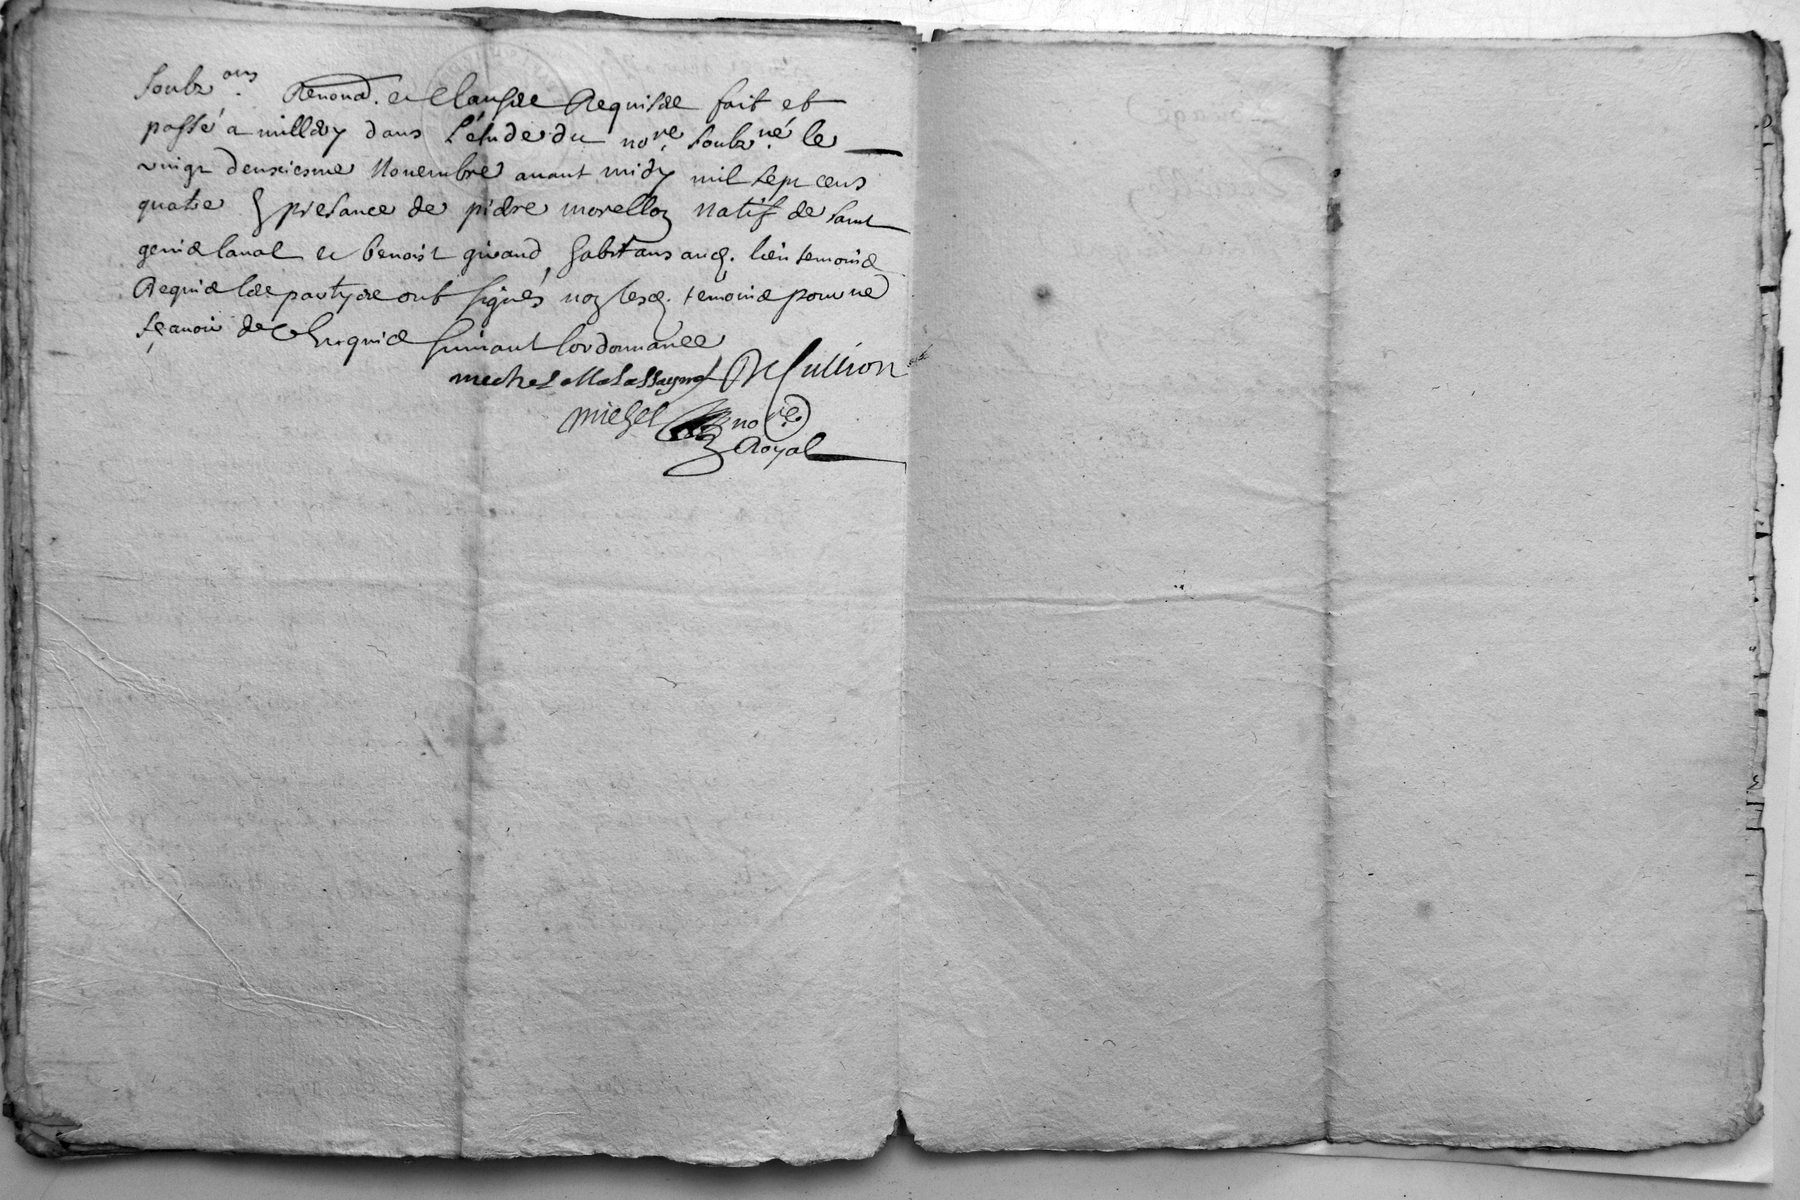 soubz.ons Renond. et clausse Requise fait et
passé a millery dans l'étude du no.re soubz.né le
vingt deuxiesme novembre avant midy mil sept cens
quatre presance de pierre morellon natif de saint
genis laval et benoist giraud, habitans aud. lieu temoins
Requis les partyes ont signés non lesd. temoins pour ne
sçavoir de ce Enquis suivant l'ordonnance
Decullion
michel
no.re
Royal